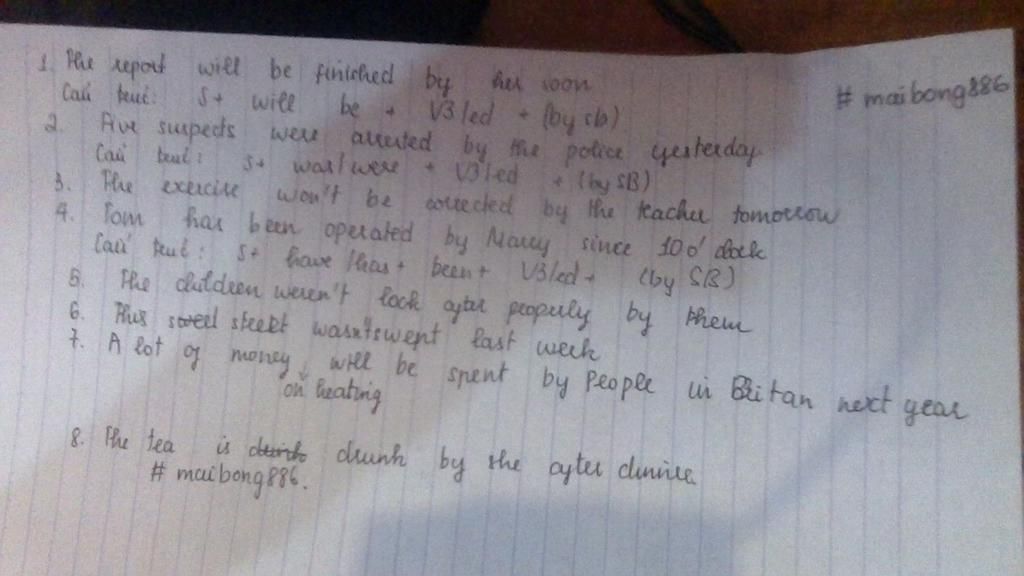 1. The report will be finished by her soon
# maibong886
Cấu trúc: S+ will be + V3/ed + (by sb)
2. Five suspects were arrested by the police yesterday
Cấu trúc: S+ was/were + V3/ed + (by SB)
3. The exercise won't be corrected by the teacher tomorrow
4. Tom has been operated by Marcy since 10 o'clock
Cấu trúc: S+ have/has+ been+ V3/ed+ (by SB)
5. The children weren't look after properly by them
6. This street wasn't swept last week
7. A lot of money will be spent by People in Britan next year
on heating
8. The tea is drunk by she after dinner
# maibong886.